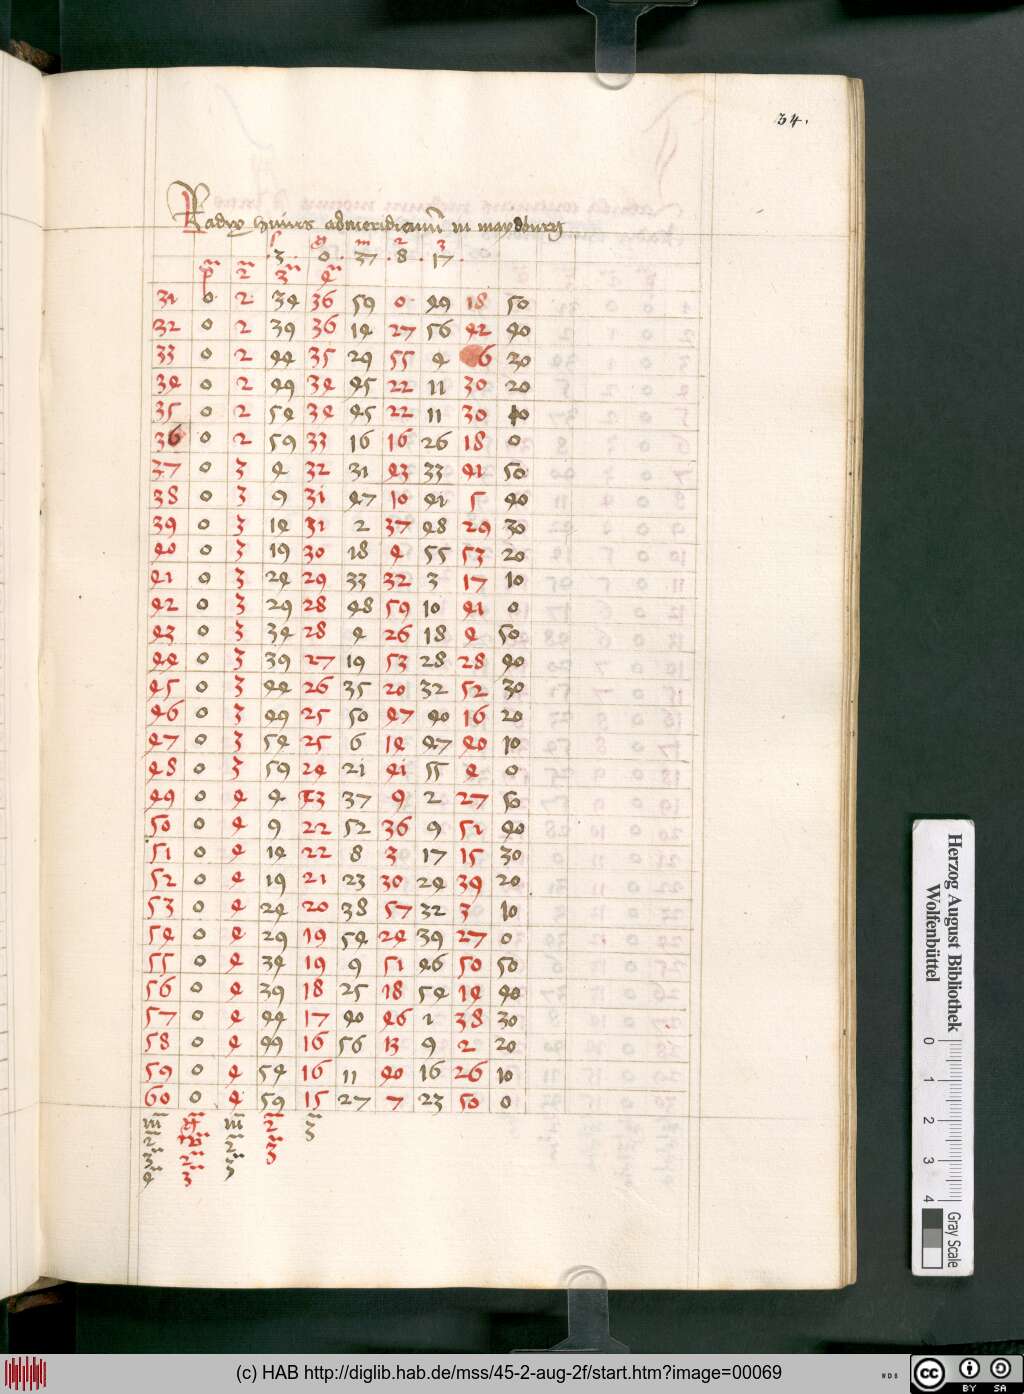 34.
Radix huius ad meridianum in maydburg
s g m 2 3
3 · 0 · 37 · 8 · 17
p 2 3 4
31 0 2 34 36 59 0 49 18 50
32 0 2 39 36 14 27 56 42 40
33 0 2 44 35 29 55 4 6 30
34 0 2 49 34 45 22 11 30 20
35 0 2 54 34 45 22 11 30 10
36 0 2 59 33 16 16 26 18 0
37 0 3 4 32 31 43 33 41 50
38 0 3 9 31 47 10 41 5 40
39 0 3 14 31 2 37 48 29 30
40 0 3 19 30 18 4 55 53 20
41 0 3 24 29 33 32 3 17 10
42 0 3 29 28 48 59 10 41 0
43 0 3 34 28 4 26 18 4 50
44 0 3 39 27 19 53 28 28 40
45 0 3 44 26 35 20 32 52 30
46 0 3 49 25 50 47 40 16 20
47 0 3 54 25 6 14 47 40 10
48 0 3 59 24 21 41 55 4 0
49 0 4 4 23 37 9 2 27 50
50 0 4 9 22 52 36 9 51 40
51 0 4 14 22 8 3 17 15 30
52 0 4 19 21 23 30 24 39 20
53 0 4 24 20 38 57 32 3 10
54 0 4 29 19 54 24 39 27 0
55 0 4 34 19 9 51 46 50 50
56 0 4 39 18 25 18 54 14 40
57 0 4 44 17 40 46 1 38 30
58 0 4 49 16 56 13 9 2 20
59 0 4 54 16 11 40 16 26 10
60 0 4 59 15 27 7 23 50 0
m m 2 3
2 2 3
3 2
4 3
Herzog August Bibliothek
Wolfenbüttel
0 1 2 3 4
Gray Scale
(c) HAB http://diglib.hab.de/mss/45-2-aug-2f/start.htm?image=00069
cc BY SA